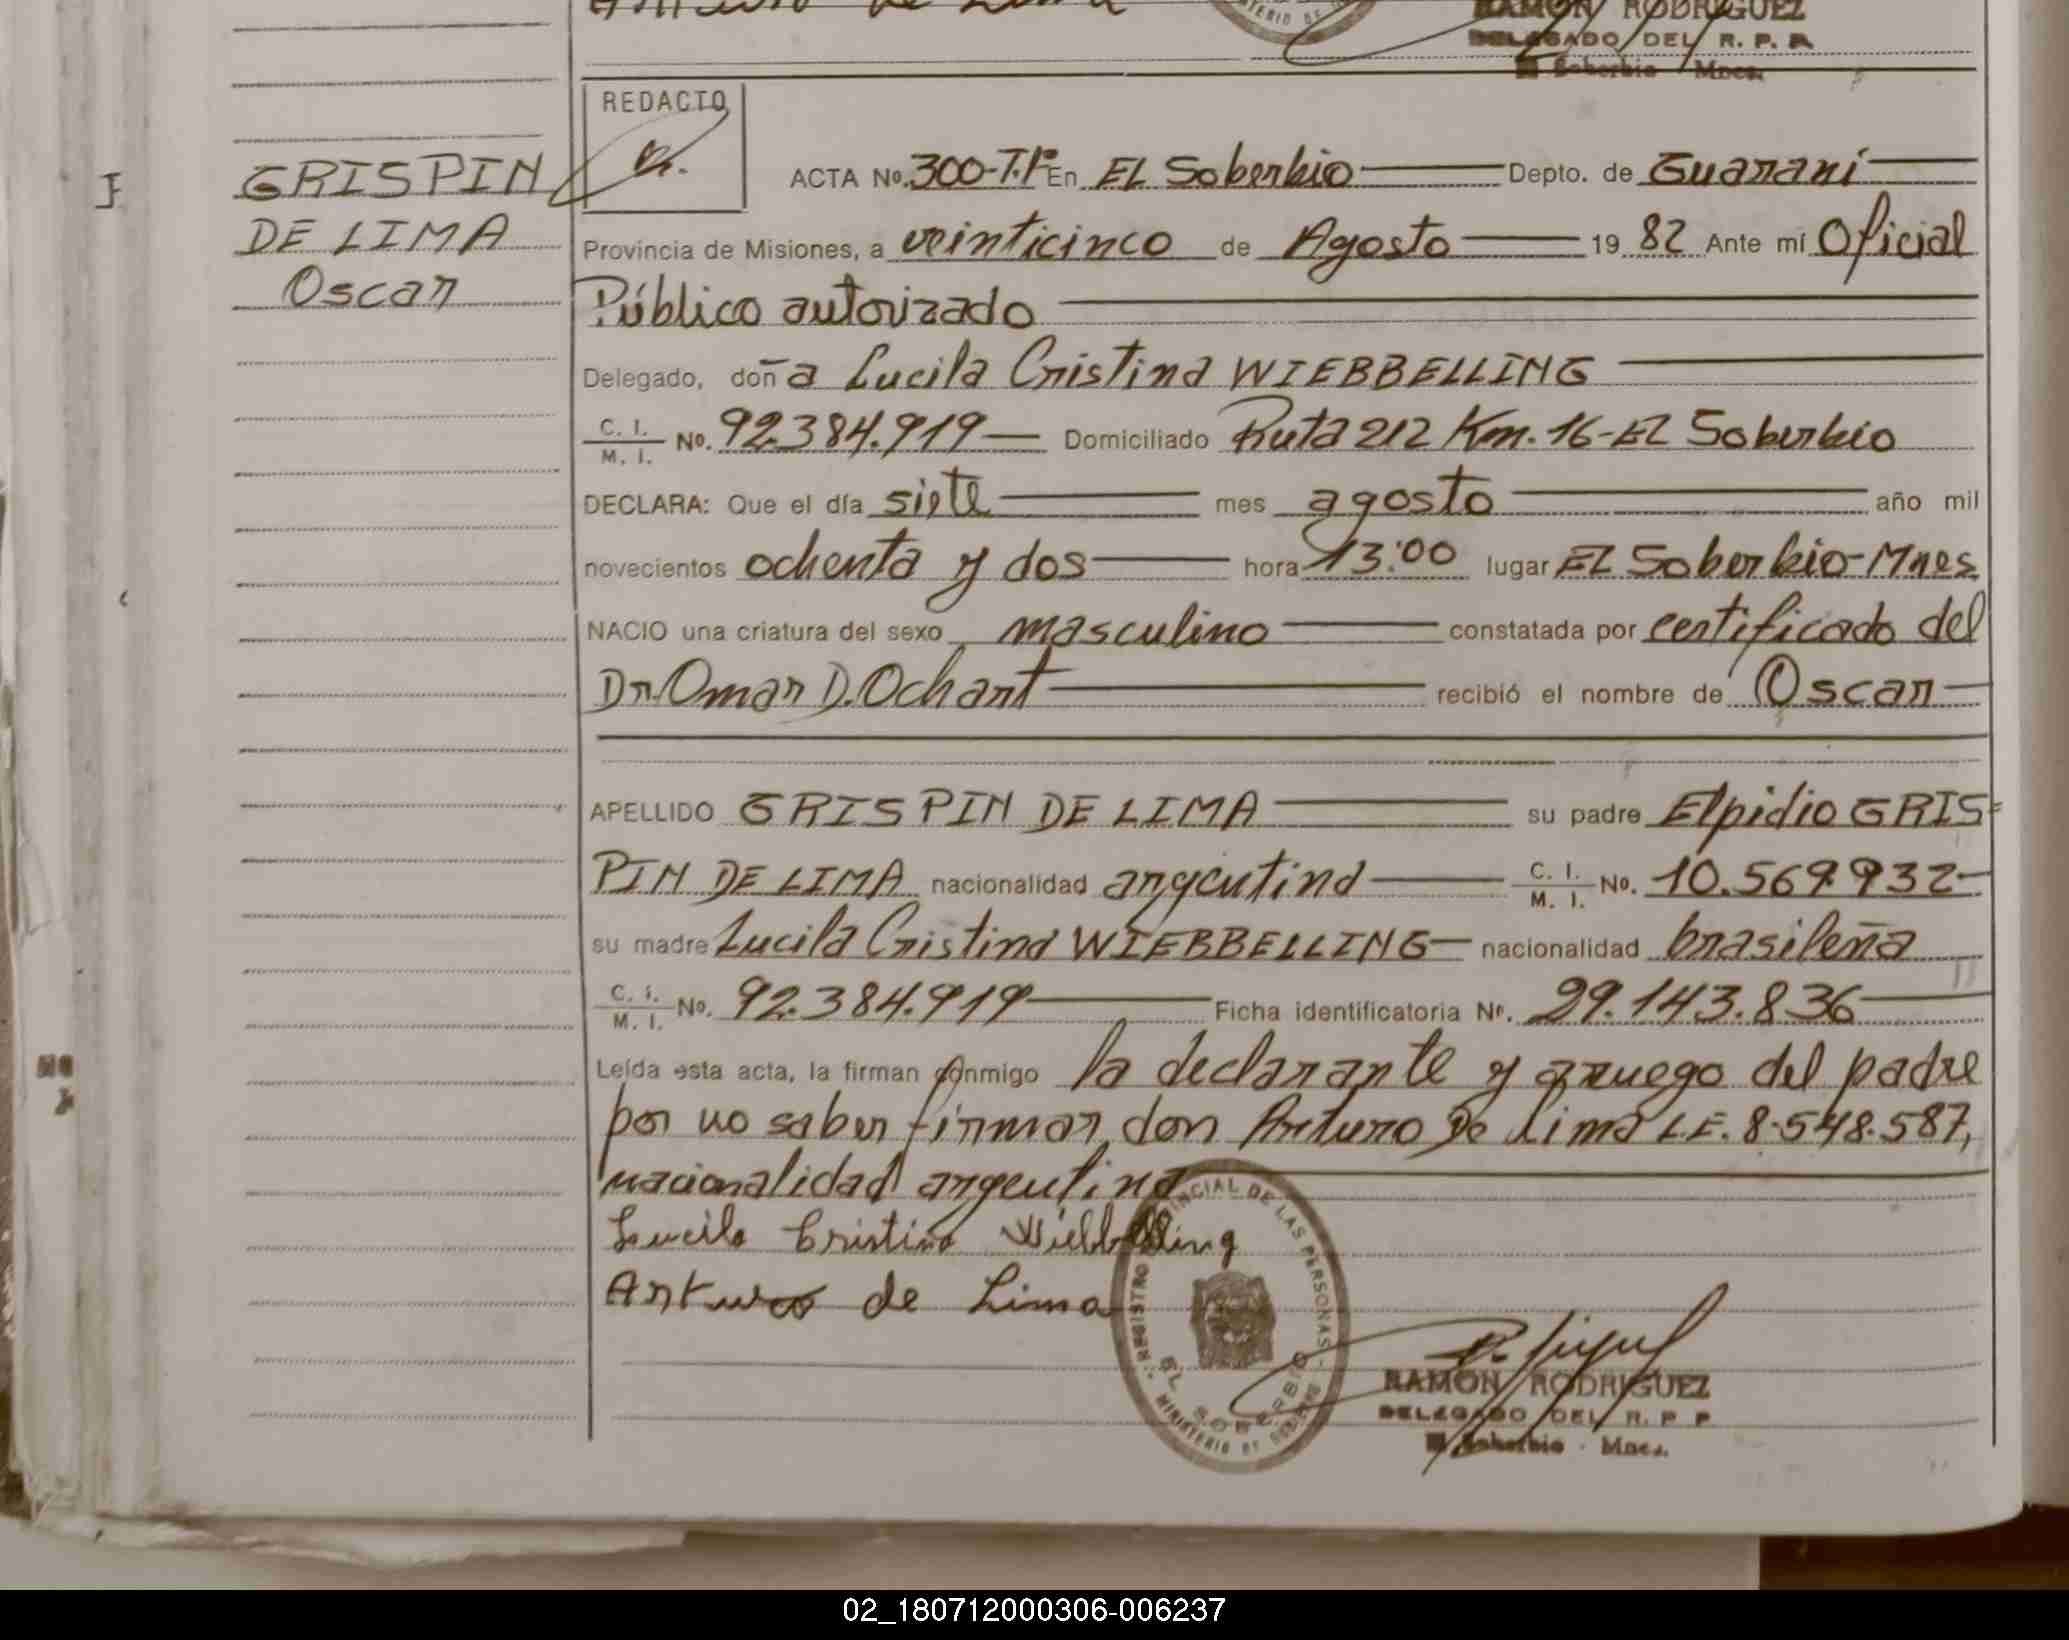 Arturo de Lima
RAMON RODRIGUEZ
DELEGADO DEL R. P. P.
El Soberbio Mnes.
REDACTO
GRISPIN
DE LIMA
Oscar
ACTA No. 300-T.1º En EL Soberbio Depto. de Guaraní
Provincia de Misiones, a veinticinco de Agosto 19 82 Ante mí Oficial
Público autorizado
Delegado, doña Lucila Cristina WIEBBELLING
C. I.
M. I. No. 92.384.919 Domiciliado Ruta 212 Km. 16-EL Soberbio
DECLARA: Que el día siete mes agosto año mil
novecientos ochenta y dos hora 13:00 lugar EL Soberbio-Mnes
NACIO una criatura del sexo masculino constatada por certificado del
Dr. Omar D. Ochant recibió el nombre de Oscar
APELLIDO GRISPIN DE LIMA su padre Elpidio GRIS=
PIN DE LIMA nacionalidad argentina C. I.
M. I. No. 10.569.932
su madre Lucila Cristina WIEBBELLING nacionalidad brasileña
C. I.
M. I. No. 92.384.919 Ficha identificatoria Nº. 29.143.836
Leída esta acta, la firman conmigo la declarante y a ruego del padre
por no saber firmar, don Arturo De Lima L.E. 8.548.587,
nacionalidad argentina
Lucila Cristina Wiebbelling
Arturo de Lima
REGISTRO PROVINCIAL DE LAS PERSONAS
EL SOBERBIO
MINISTERIO DE GOBIERNO
RAMON RODRIGUEZ
DELEGADO DEL R. P. P.
El Soberbio - Mnes.
02_180712000306-006237